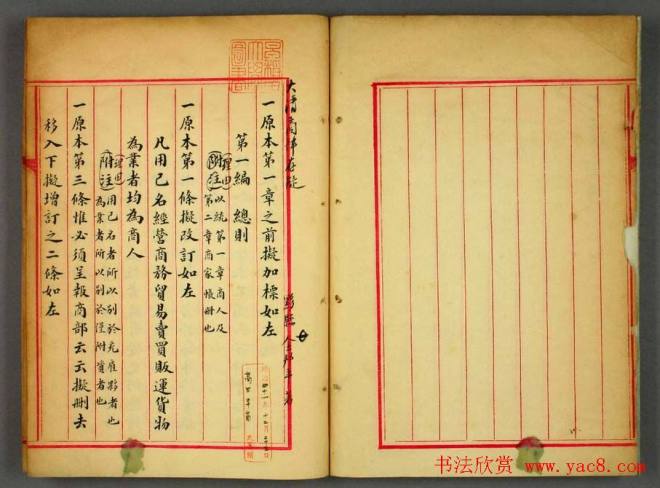 一原本第一章之前擬加標如左
第一編 總則
理由
附注
以統第一章商人及
第二章商家帳冊也
一原本第一條擬改訂如左
凡用己名經營商務貿易賣買販運貨物
為業者均為商人
理由
附注
用己名者所以別於充雇夥者也
為業者所以別於僅附資者也
一原本第三條惟必須呈報商部云云擬刪去
移入下擬增訂之二條如左
书法欣赏 www.yac8.com